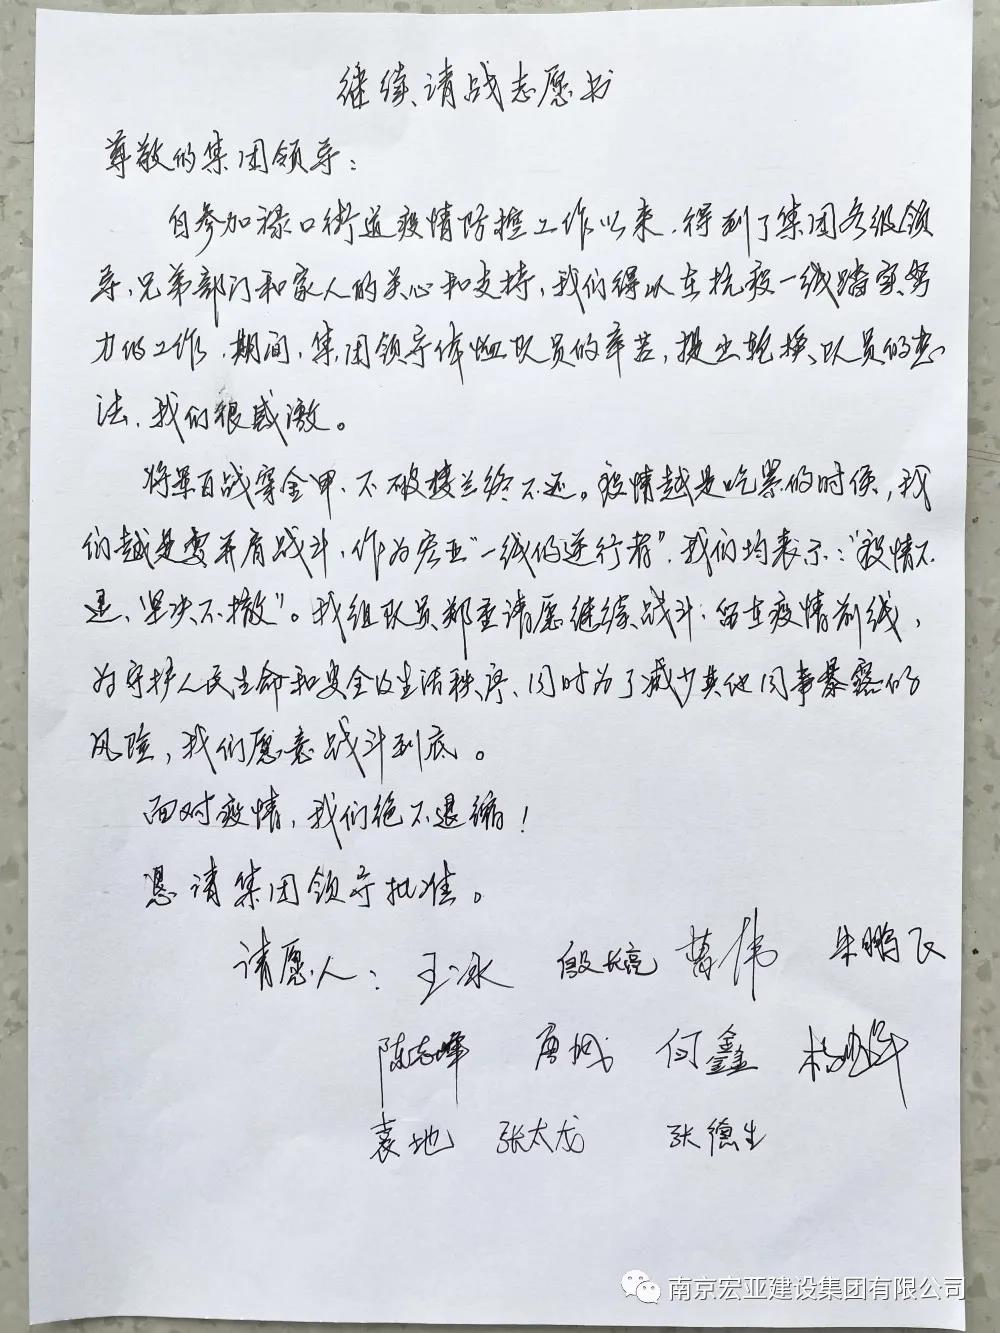 继续请战志愿书
尊敬的集团领导：
自参加禄口街道疫情防控工作以来，得到了集团各级领
导、兄弟部门和家人的关心和支持，我们得以在抗疫一线踏实努
力的工作，期间，集团领导体恤队员的辛苦，提出轮换队员的想
法，我们很感激。
将军百战穿金甲，不破楼兰终不还。疫情越是吃紧的时候，我
们越是要并肩战斗，作为宏亚“一线的逆行者”，我们均表示：“疫情不
退，坚决不撤”。我组队员郑重请愿继续战斗：留在疫情前线，
为守护人民生命和安全及生活秩序、同时为了减少其他同事暴露的
风险，我们愿意战斗到底。
面对疫情，我们绝不退缩！
恳请集团领导批准。
请愿人：王冰 殷长亮 曹伟 朱鹏飞
陈志峰 唐城 何鑫
袁地 张太龙 张德生
南京宏亚建设集团有限公司